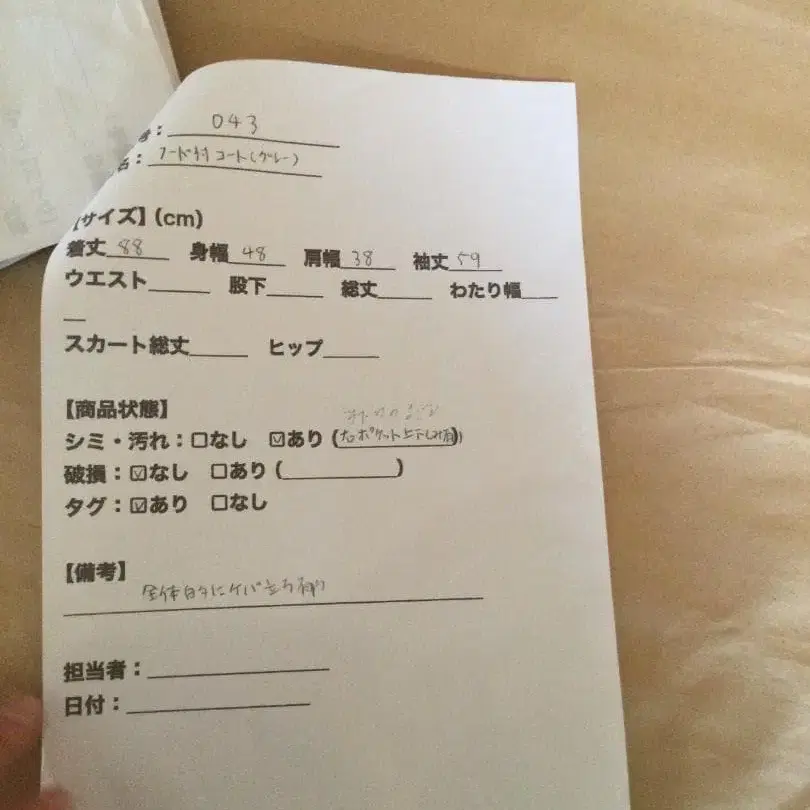 号：043
名：フード付コート(グレー)
【サイズ】(cm)
着丈 88 身幅 48 肩幅 38 袖丈 59
ウエスト 股下 総丈 わたり幅
スカート総丈 ヒップ
【商品状態】
シミ・汚れ：□なし ☑あり (右ポケット上下シミ有)
破損：☑なし □あり ( )
タグ：☑あり □なし
【備考】
全体的にケバ立ち有り
担当者：
日付：